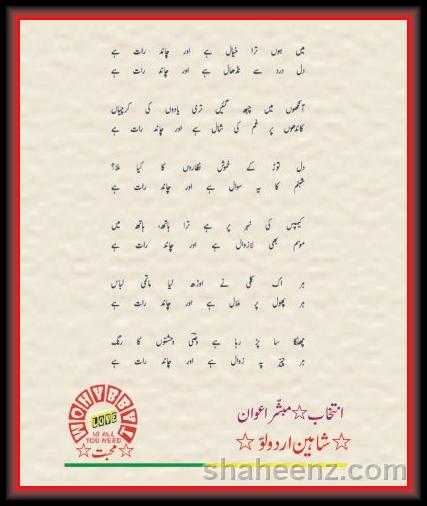 میں ہوں ترا خیال ہے اور چاند رات ہے
دل درد سے نڈھال ہے اور چاند رات ہے
آنکھوں میں چبھ گئیں تری یادوں کی کرچیاں
کاندھوں پر غم کی شال ہے اور چاند رات ہے
دل توڑ کے خموش نظاروں کا کیا ملا؟
شبنم کا یہ سوال ہے اور چاند رات ہے
کیمپس کی نہر پر ہے ترا ہاتھ، ہاتھ میں
موسم بھی لازوال ہے اور چاند رات ہے
ہر اک کلی نے اوڑھ لیا ماتمی لباس
ہر پھول پر ملال ہے اور چاند رات ہے
چھلکا سا پڑ رہا ہے وصی وحشتوں کا رنگ
ہر چیز پہ زوال ہے اور چاند رات ہے
انتخاب☆مبشّر اعوان
☆شاہین اردو لوّ☆
LOVE
IS ALL
YOU NEED
☆محبت☆
shaheenz.com